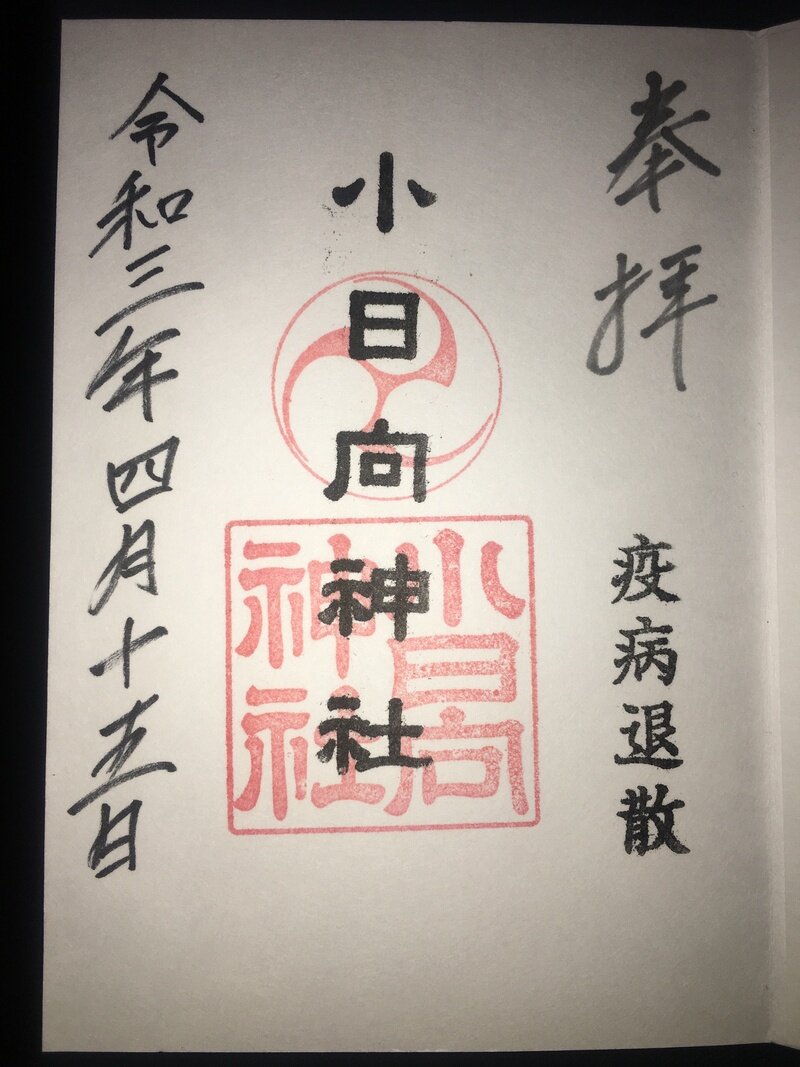 奉拝
疫病退散
小日向神社
小日向
神社
令和三年四月十五日